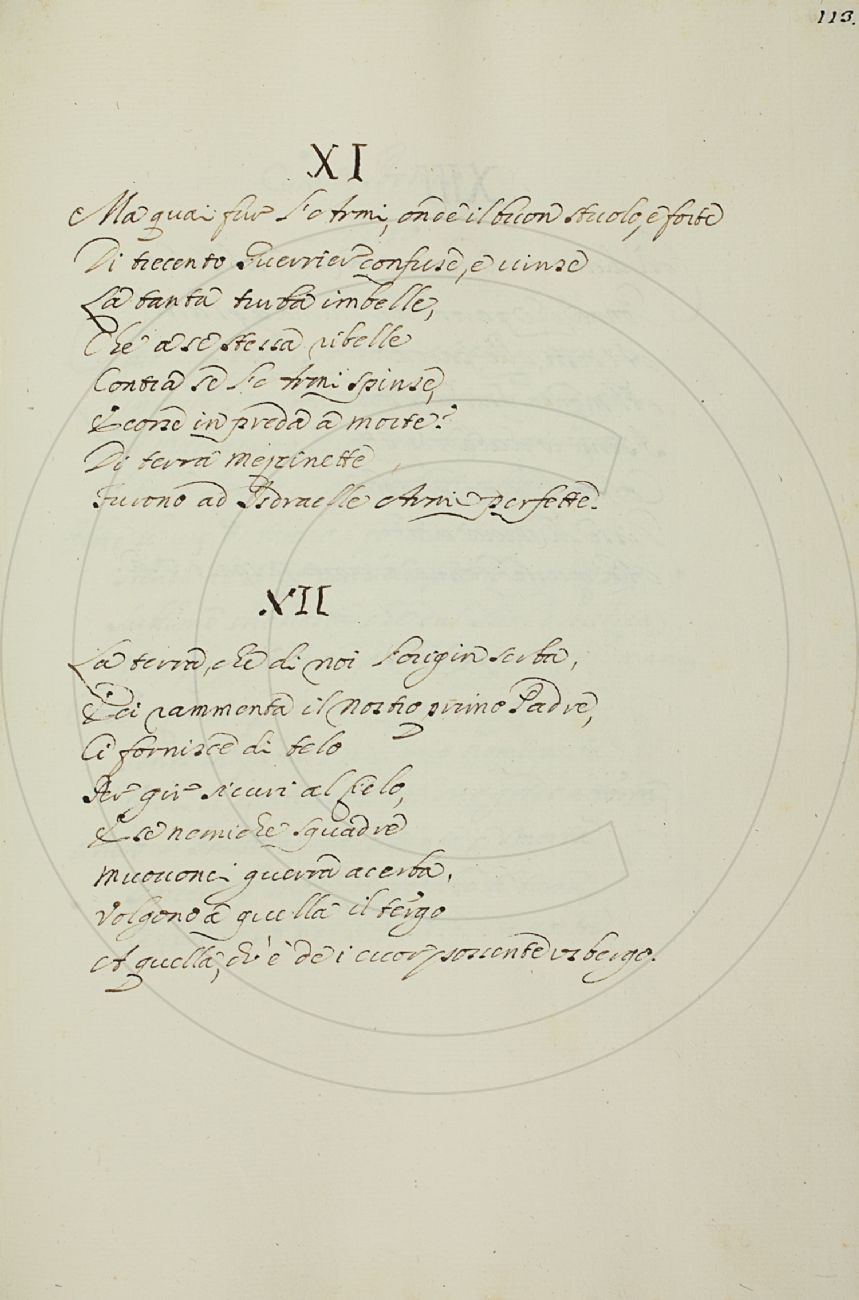 113.
XI
Ma quai fur l'Armi, onde il buon stuolo, e forte
Di trecento Guerrier confuse, e vinse
La tanta turba imbelle,
Che a se stessa ribelle
Contra se l'Armi spinse,
E corse in preda a morte?
Di terra Mezzinette
Furono ad Isdraelle Armi perfette.
XII
La terra, che di noi l'origin serba,
E ci rammenta il Nostro primo Padre,
Ci fornisce di telo
Per gir sicuri al Cielo,
E se nemiche squadre
Muovonci guerra acerba,
Volgono a quella il tergo
A quella, ch'è de i cuor possente usbergo.